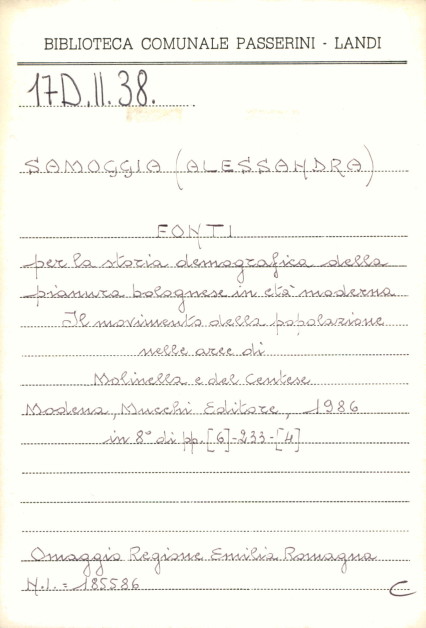 BIBLIOTECA COMUNALE PASSERINI - LANDI
17D.II.38.
SAMOGGIA (ALESSANDRA)
FONTI
per la storia demografica della
pianura bolognese in età moderna
Il movimento della popolazione
nelle aree di
Molinella e del Centese
Modena, Mucchi Editore, 1986
in 8° di pp. [6]-233-[4]
Omaggio Regione Emilia Romagna
N.I. = 185586
C